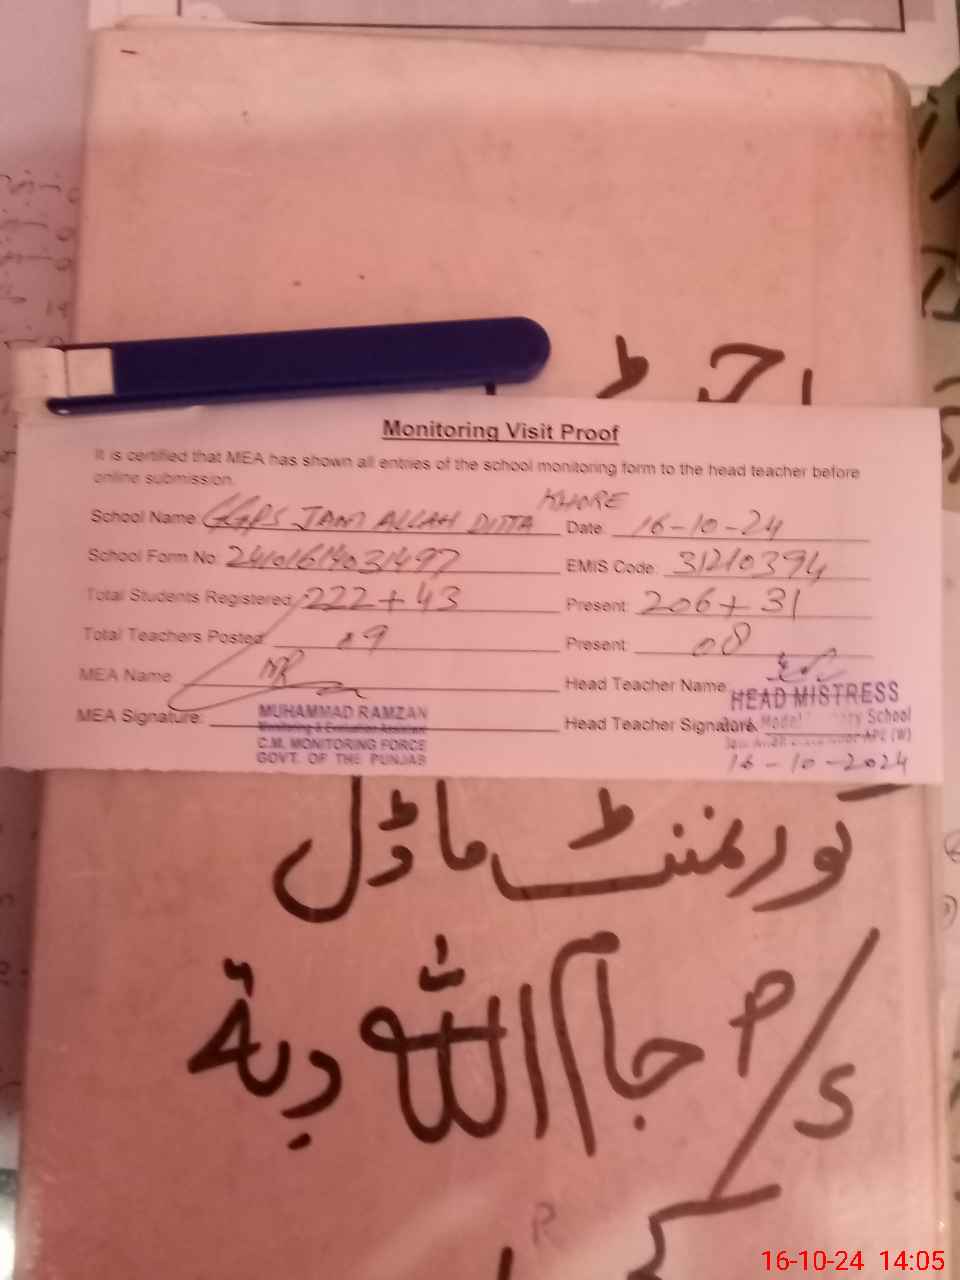 Monitoring Visit Proof
It is certified that MEA has shown all entries of the school monitoring form to the head teacher before
online submission.
School Name GGPS JAM ALLAH DITTA KHORE Date 16-10-24
School Form No. 24101614031497 EMIS Code: 31210394
Total Students Registered 222+43 Present: 206+31
Total Teachers Posted 09 Present: 08
MEA Name Head Teacher Name
MEA Signature: Head Teacher Signature
MUHAMMAD RAMZAN
Monitoring & Evaluation Assistant
C.M. MONITORING FORCE
GOVT. OF THE PUNJAB
HEAD MISTRESS
Model School
16-10-2024
گورنمنٹ ماڈل
P/S جام اللہ دتہ
16-10-24 14:05